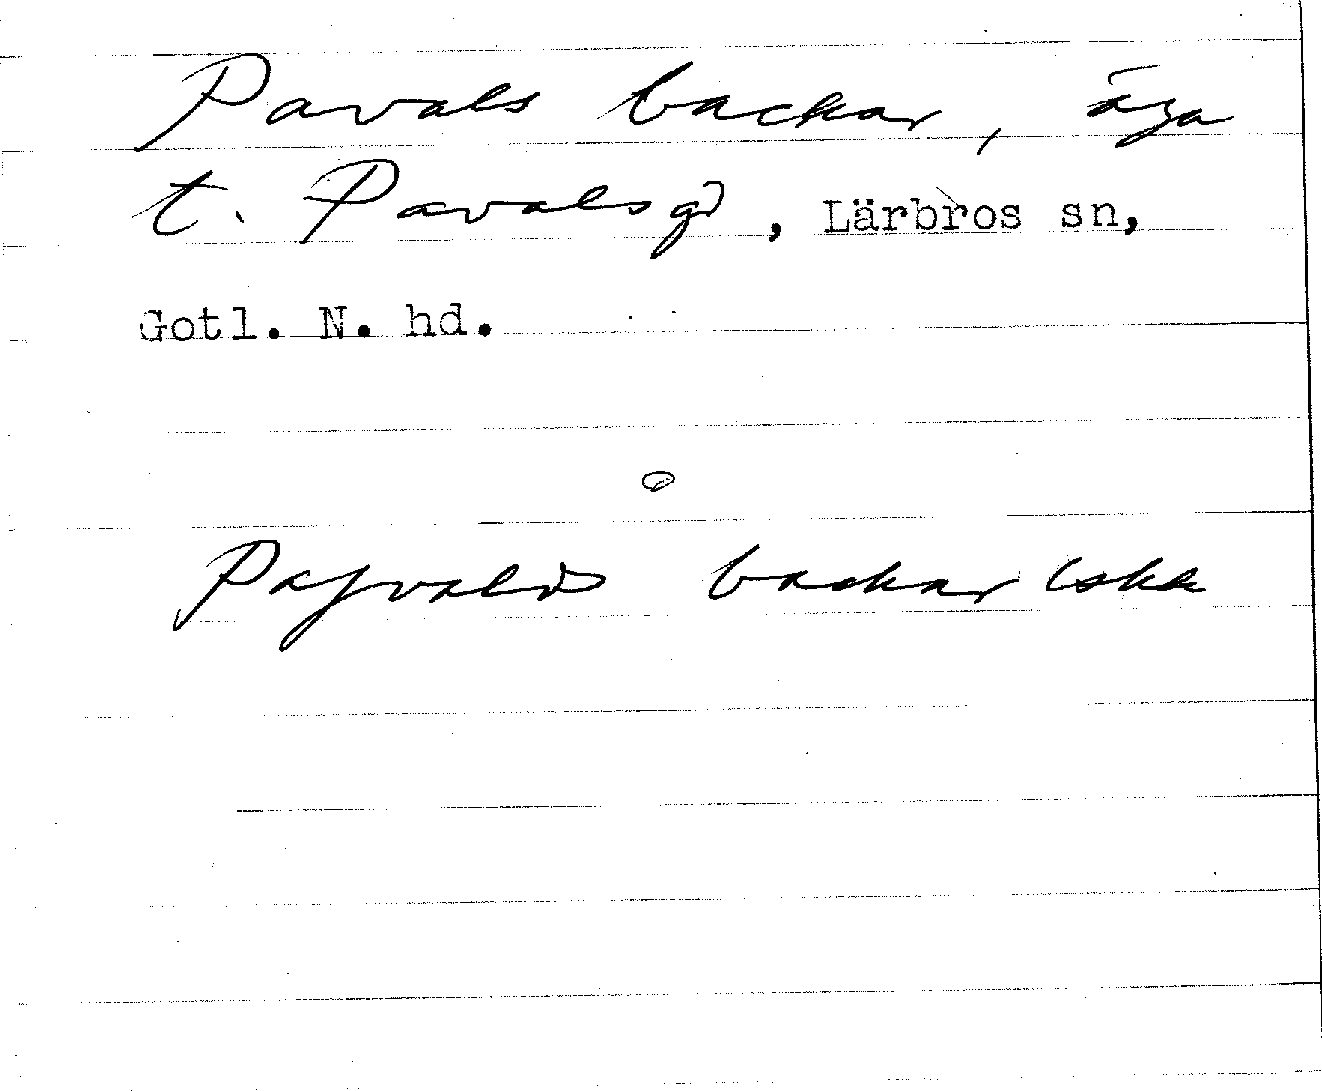 Pavals backar, äga
t. Pavalsgd, Lärbros sn,
Gotl. N. hd.
backar